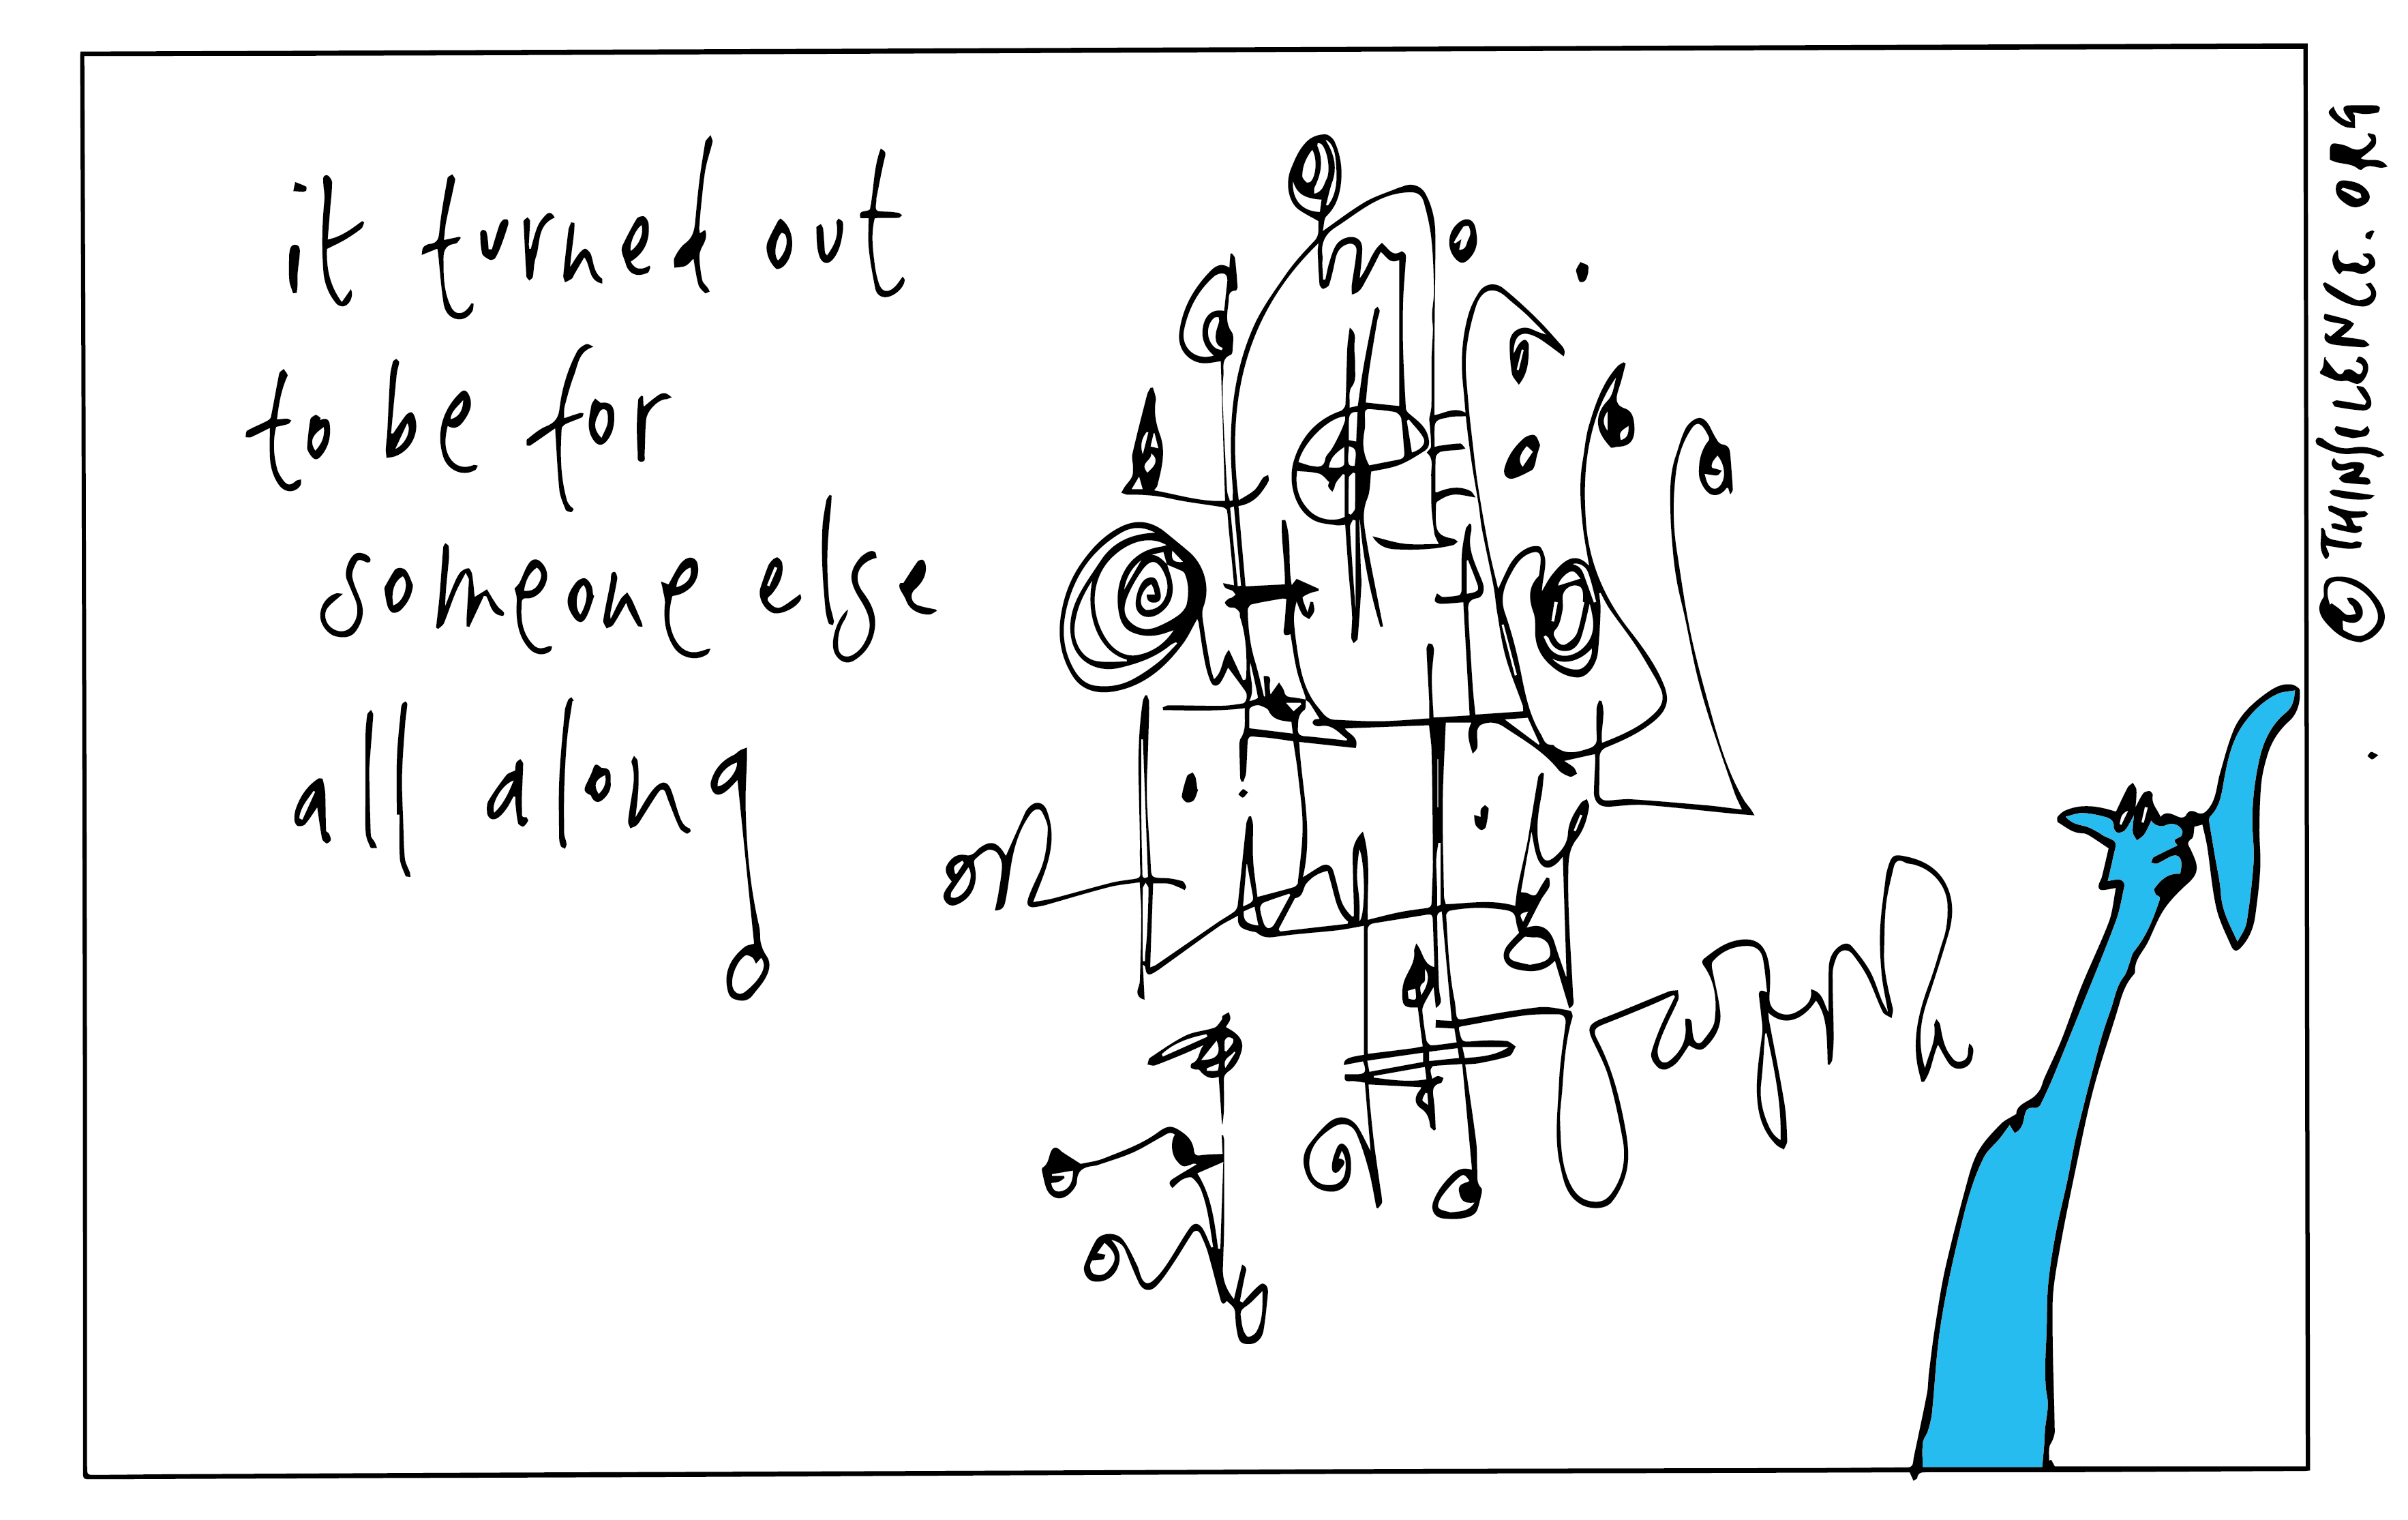 it turned out
to be for
someone else
all along
@THINKJENKS.ORG